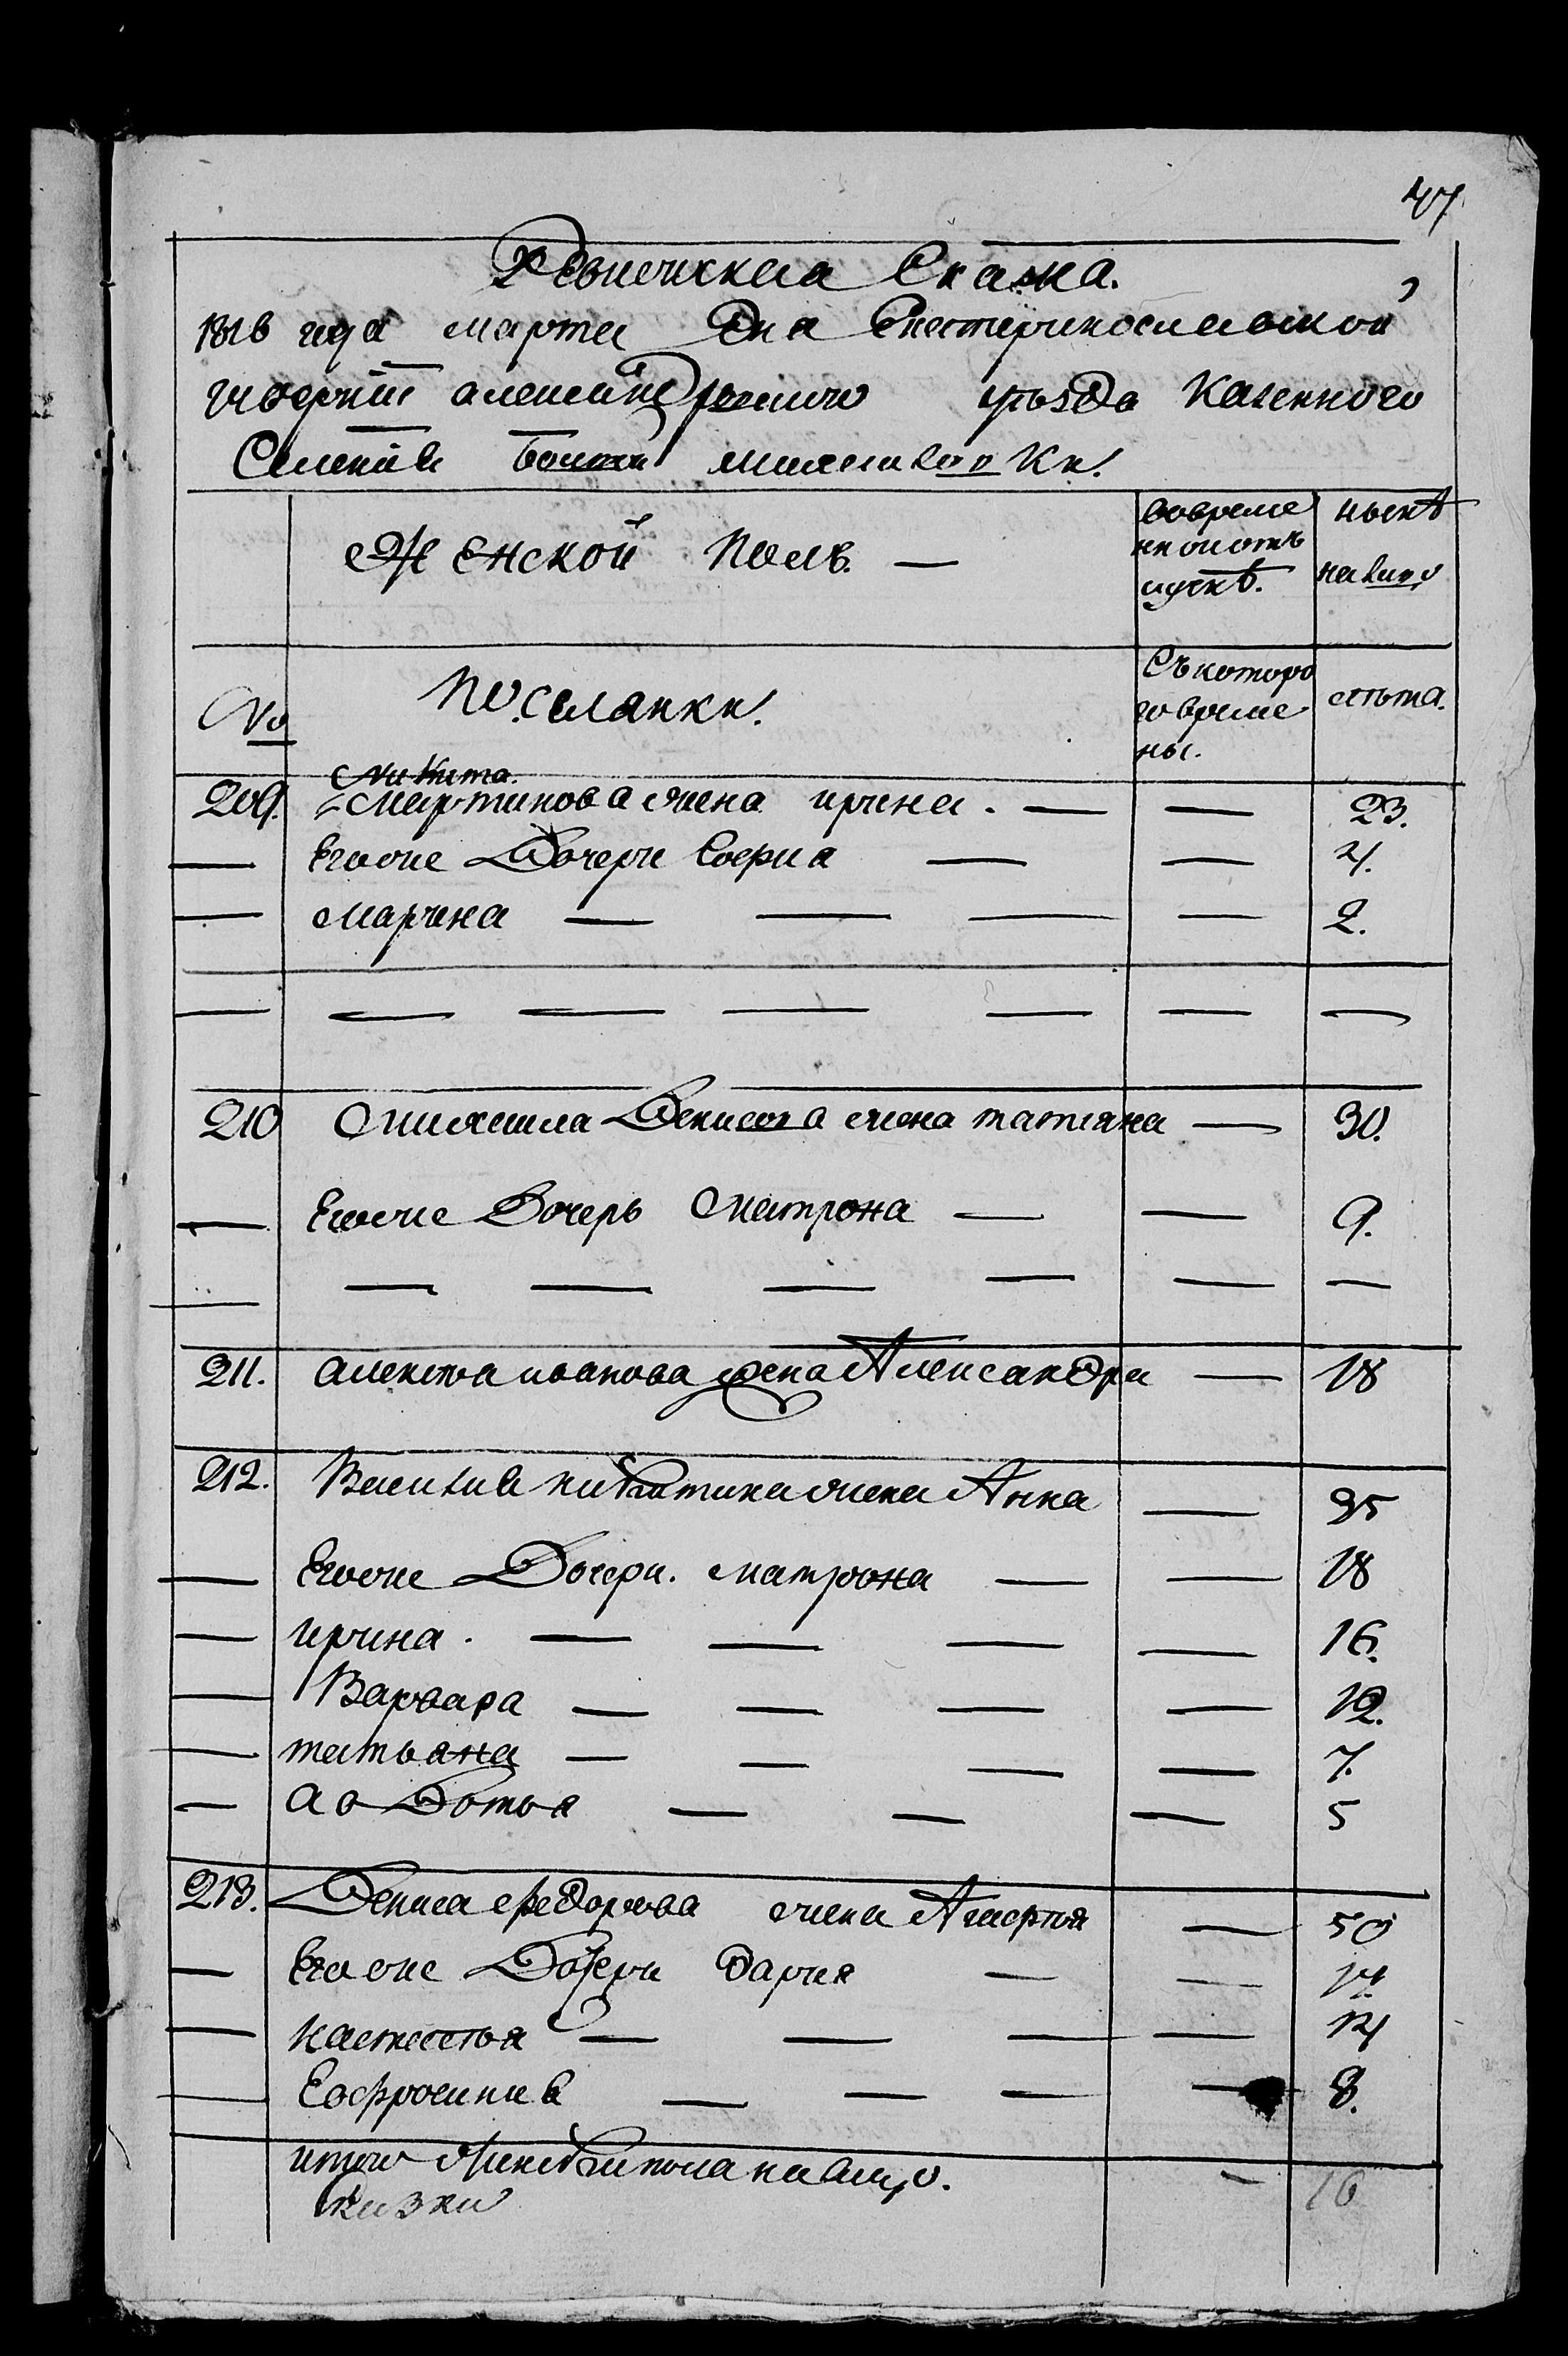 47
Ревижская Скаска.
1816 года марта Дня Екатеринославской
губернiи александрыского уѣзда Казенного
Селенiя михайловки.
Женской Полъ. —
вовреме
нной отъ
лучкѣ.
нынѣ
налицо
No
Поселянки.
Съ которо
го време
ны.
лѣта.
Никита.
209. Мартинова жена ирина. — — 23.
— Егоже Дочери Софиа — — 4.
— Марина — — — — 2.
— — — — — — —
210 Михаила Денисова жена татияна — 30.
— Егоже Дочерь Матрона — — 9.
— — — — — — —
211. алексѣя иванова жена Александра — 18
212. Василия никитина жена Анна — 35
— Егоже Дочери. матрона — — 18
— ирина. — — — — 16.
— Варвара — — — — 12.
— татьяна — — — — 7.
— авдотья — — — 5
213. Дениса федорова жена Агафья — 50
— Егоже Дочери Дария — — 17.
— настасья — — — — 14
— Еофросиния — — — — 8.
итого женска пола налицо. — 16